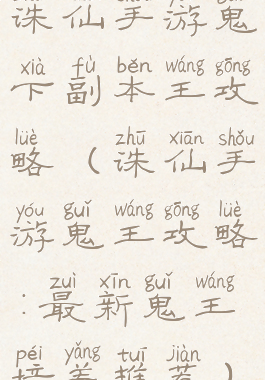 诛仙手游鬼
xià fù běn wáng gōng
下副本王攻
lüè zhū xiān shǒu
略（诛仙手
yóu guǐ wáng gōng lüè
游鬼王攻略
zuì xīn guǐ wáng
：最新鬼王
péi yǎng tuī jiàn
培养推荐）